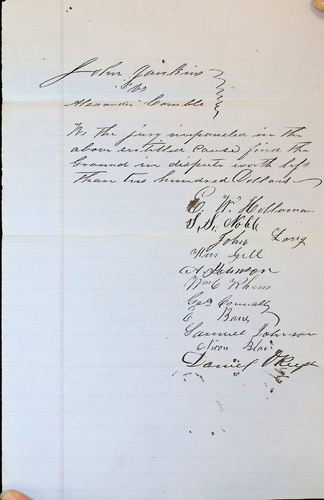 John Jankins
vs
Alexander Comble
We the jury impaneled in the
above entitled cause find the
Ground in dispute worth less
than two hundred Dollars
E. W. Holloman
S. S. Noble
John Long
Wm Gill
A Johnson
Wm C Rhems
Geo Connally
E Bane
Samuel Johnson
Nixon Blair
Daniel